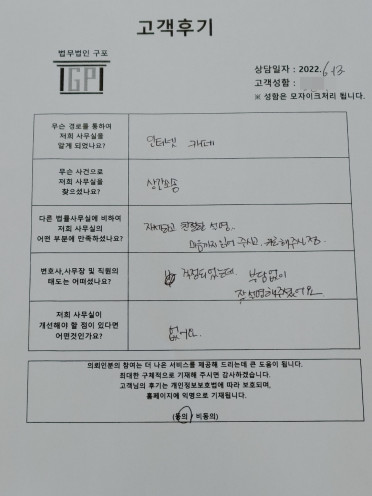 고객후기
법무법인 구포
GP
상담일자 : 2022. 6.13
고객성함 :
※ 성함은 모자이크처리 됩니다.
무슨 경로를 통하여
저희 사무실을
알게 되었나요?
인터넷 카페
무슨 사건으로
저희 사무실을
찾으셨나요?
상간소송
다른 법률사무실에 비하여
저희 사무실의
어떤 부분에 만족하셨나요?
자세하고 친절한 설명.
마음까지 읽어 주시고, 위로해주시는 점.
변호사,사무장 및 직원의
태도는 어떠셨나요?
걱정되었는데 부담없이
잘 설명해주셨어요
저희 사무실이
개선해야 할 점이 있다면
어떤것인가요?
없어요.
의뢰인분의 참여는 더 나은 서비스를 제공해 드리는데 큰 도움이 됩니다.
최대한 구체적으로 기재해 주시면 감사하겠습니다.
고객님의 후기는 개인정보보호법에 따라 보호되며,
홈페이지에 익명으로 기재됩니다.
(동의 / 비동의)